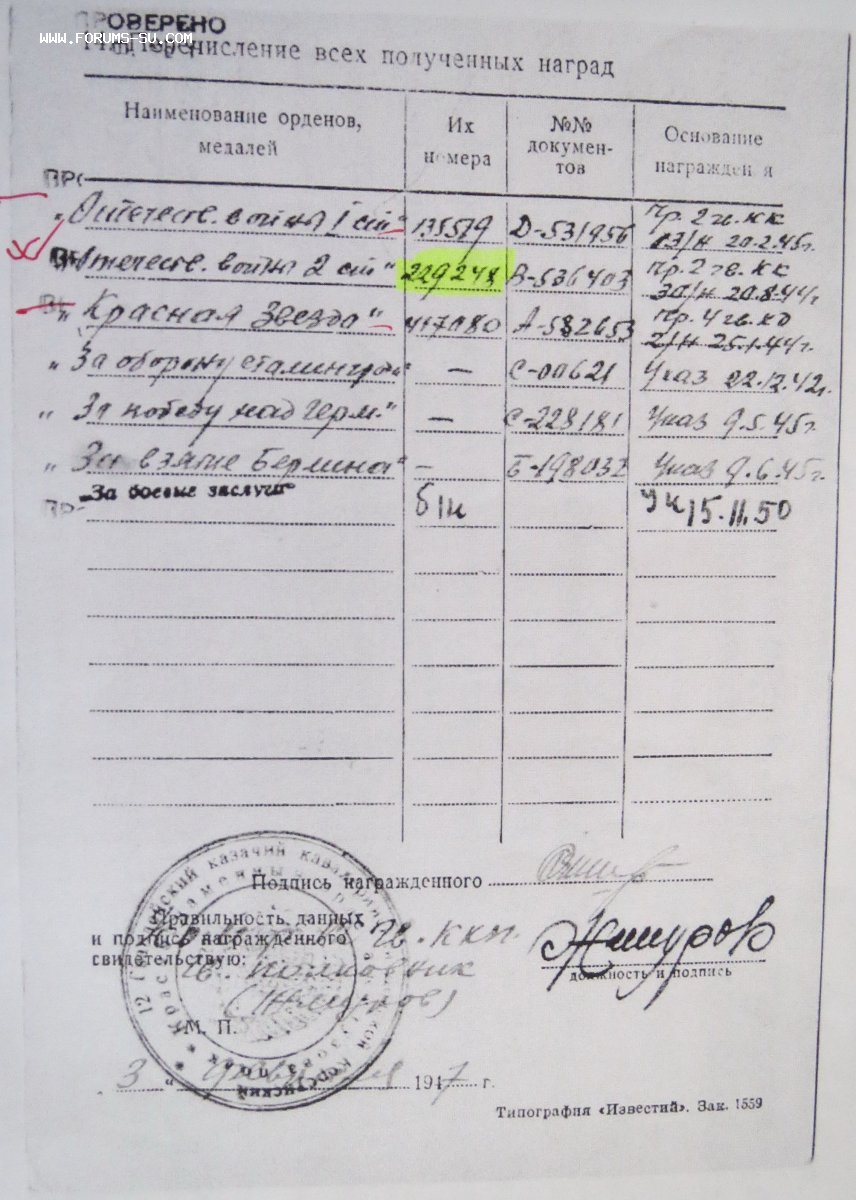 ПРОВЕРЕНО
WWW.FORUMS-SU.COM
Перечисление всех полученных наград
Наименование орденов, медалей
Их номера
№№ документов
Основание награждения
"Отечеств. война 1 ст" 135579 Д-531956 Пр. 2 гв. КК 13/н 20.2.45г.
Отечеств. война 2 ст" 229248 В-536403 Пр. 2 гв. КК 30/н 20.8.44г
"Красная Звезда" 417080 А-582653 Пр. 4 гв. КД 2/н 25.1.44г.
"За оборону Сталинграда" — С-00621 Указ 22.12.42г.
"За победу над Герм." — С-228181 Указ 9.5.45г.
"За взятие Берлина" — Б-198032 Указ 9.6.45г.
"За боевые заслуги" б/н УК 15.11.50
Подпись награжденного
Правильность данных
и подпись награжденного
свидетельствую:
гв. ккп.
гв. полковник
(Жмуров)
Жмуров
должность и подпись
М. П.
3 1947 г.
Типография «Известий». Зак. 1559